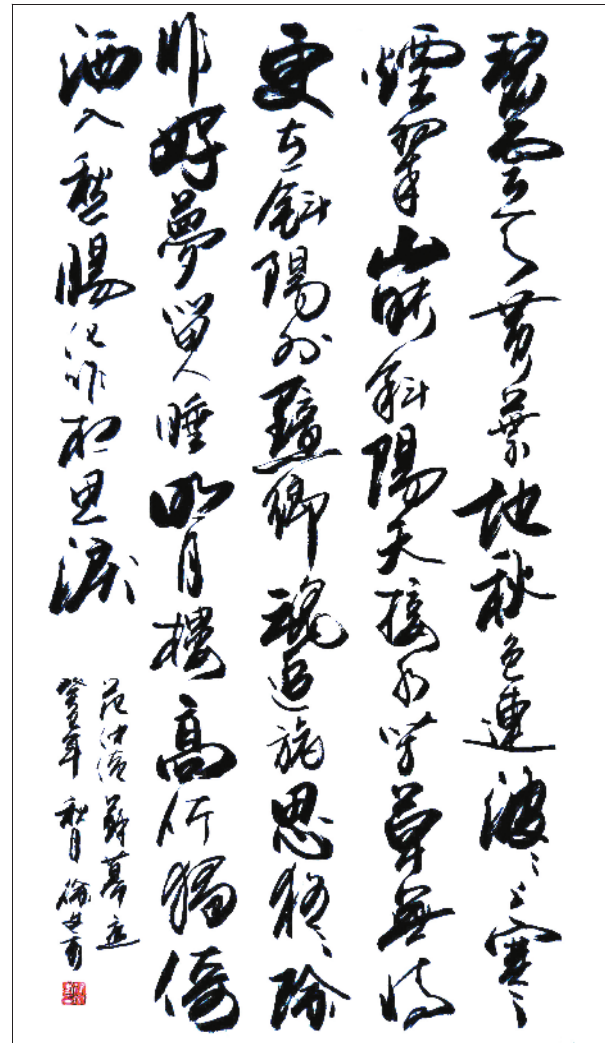 碧雲天黃葉地秋色連波〻上寒
煙翠山映斜陽天接水芳草無情
更在斜陽外黯鄉魂追旅思夜〻除
非好夢留人睡明月樓高休獨倚
酒入愁腸化作相思淚
范仲淹蘇幕遮
年秋月徐